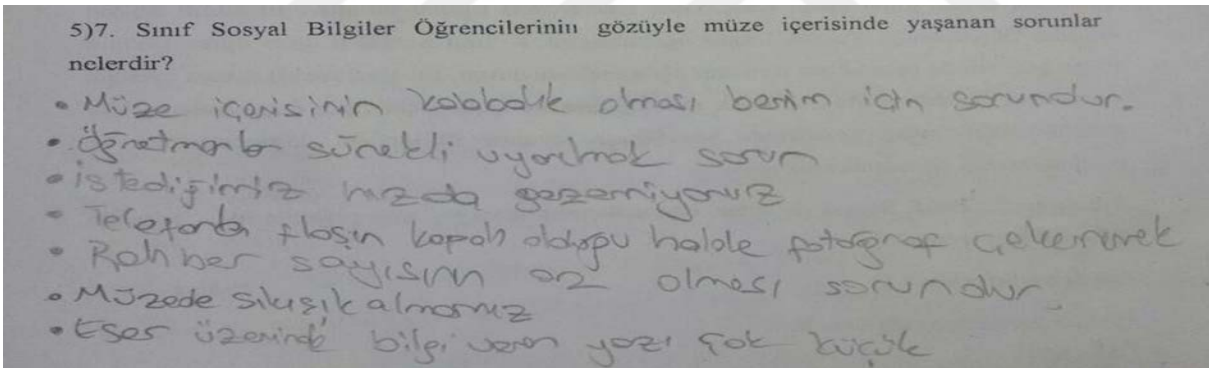 5)7. Sınıf Sosyal Bilgiler Öğrencilerinin gözüyle müze içerisinde yaşanan sorunlar
nelerdir?
• Müze içerisinin kalabalık olması benim için sorundur.
• Öğretmenler sürekli uyarılmak sorun
• istediğimiz hızda gezemiyoruz
• Telefonla flaşın kapalı olduğu halde fotoğraf çekememek
• Rehber sayısının az olması sorundur.
• Müzede sıkışık almamız
• Eser üzerinde bilgi veren yazı çok küçük